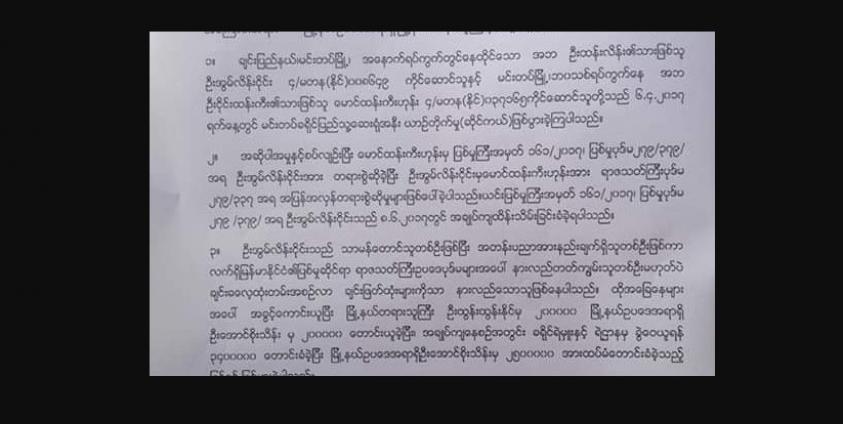 ၁။ ချင်းပြည်နယ်၊မင်းတပ်မြို့၊ အနောက်ရပ်ကွက်တွင်နေထိုင်သော အဘ ဦးထန်းလိန်း၏သားဖြစ်သူ
ဦးအွမ်လိန်းဝိုင်း ၄/မတန(နိုင်)၀၀၈၆၄၉ ကိုင်ဆောင်သူနှင့် မင်းတပ်မြို့၊ဘဝသစ်ရပ်ကွက်နေ အဘ
ဦးဝိုင်းထန်းကီး၏သားဖြစ်သူ မောင်ထန်းကီးဟုန်း ၄/မတန(နိုင်)၀၃၇၁၆၅ကိုင်ဆောင်သူတို့သည် ၆.၄.၂၀၁၇
ရက်နေ့တွင် မင်းတပ်ခရိုင်ပြည်သူ့ဆေးရုံအနီး ယာဉ်တိုက်မှု(ဆိုင်ကယ်)ဖြစ်ပွားခဲ့ကြပါသည်။
၂။ အဆိုပါအမှုနှင့်စပ်လျဉ်းပြီး မောင်ထန်းကီးဟုန်းမှ ပြစ်မှုကြီးအမှတ် ၁၆၁/၂၀၁၇၊ ပြစ်မှုပုဒ်မ၂၇၉/၃၇၉/
အရ ဦးအွမ်လိန်းဝိုင်းအား တရားစွဲဆိုခဲ့ပြီး ဦးအွမ်လိန်းဝိုင်းမှမောင်ထန်းကီးဟုန်းအား ရာဇသတ်ကြီးပုဒ်မ
၂၇၉/၃၃၇ အရ အပြန်အလှန်တရားစွဲဆိုမှုများဖြစ်ပေါ်ခဲ့ပါသည်။ယင်းပြစ်မှုကြီးအမှတ် ၁၆၁/၂၀၁၇၊ ပြစ်မှုပုဒ်မ
၂၇၉ /၃၇၉/ အရ ဦးအွမ်လိန်းဝိုင်းသည် ၈.၆.၂၀၁၇တွင် အချုပ်ကျထိန်းသိမ်းခြင်းခံခဲ့ရပါသည်။
၃။ ဦးအွမ်လိန်းဝိုင်းသည် သာမန်တောင်သူတစ်ဦးဖြစ်ပြီး အတန်းပညာအားနည်းချက်ရှိသူတစ်ဦးဖြစ်ကာ
လက်ရှိမြန်မာနိုင်ငံ၏ပြစ်မှုဆိုင်ရာ ရာဇသတ်ကြီးဥပဒေပုဒ်မများအပေါ် နားလည်တတ်ကျွမ်းသူတစ်ဦးမဟုတ်ပဲ
ချင်းဓလေ့ထုံးတမ်းအစဉ်လာ ချင်းဖြတ်ထုံးများကိုသာ နားလည်သောသူဖြစ်နေပါသည်။ ထိုအခြေနေများ
အပေါ် အခွင့်ကောင်းယူပြီး မြို့နယ်တရားသူကြီး ဦးထွန်းထွန်းနိုင်မှ ၂၀၀၀၀၀ မြို့နယ်ဥပဒေအရာရှိ
ဦးအောင်စိုးသိန်း မှ ၂၀၀၀၀၀ တောင်းယူခဲ့ပြီး၊ အချုပ်ကျနေစဉ်အတွင်း ခရိုင်ရဲမှူးနှင့် ရဲဌာနမှ ခွဲဝေယူရန်
၃၄၀၀၀၀၀ တောင်းခံခဲ့ပြီး မြို့နယ်ဥပဒေအရာရှိဦးအောင်စိုးသိန်းမှ ၂၅၀၀၀၀၀ အားထပ်မံတောင်းခံခဲ့သည့်